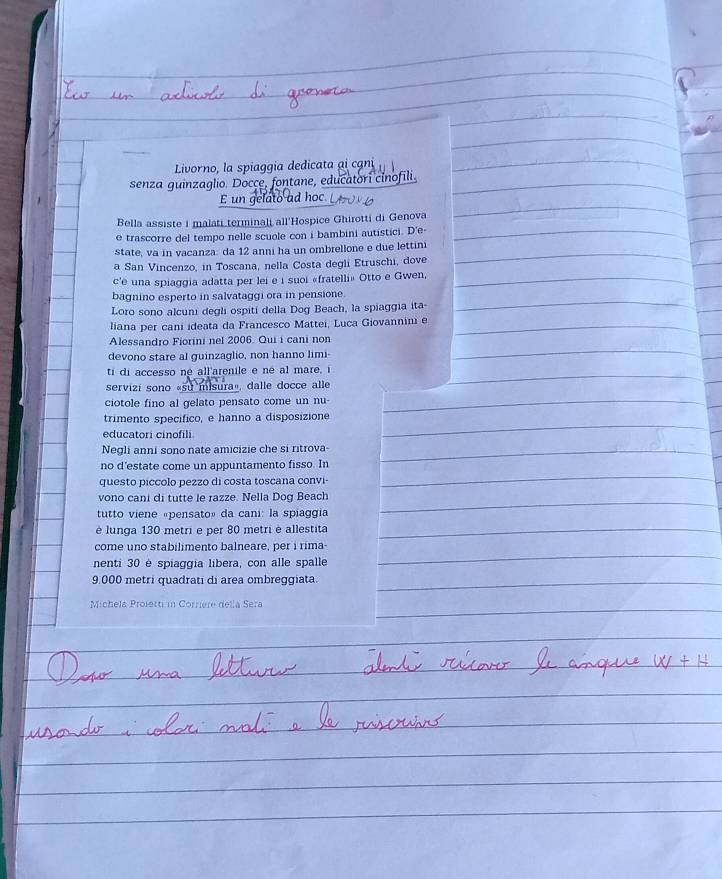 un articolo di
Livorno, la spiaggia dedicata ai cani
DI CANI
senza guinzaglio. Docce, fontane, educatori cinofili.
ADATO
E un gelato ad hoc.
Bella assiste i malati terminali all'Hospice Ghirotti di Genova
e trascorre del tempo nelle scuole con i bambini autistici. D'e-
state, va in vacanza: da 12 anni ha un ombrellone e due lettini
a San Vincenzo, in Toscana, nella Costa degli Etruschi, dove
c'è una spiaggia adatta per lei e i suoi «fratelli» Otto e Gwen,
bagnino esperto in salvataggi ora in pensione.
Loro sono alcuni degli ospiti della Dog Beach, la spiaggia ita-
liana per cani ideata da Francesco Mattei, Luca Giovannini e
Alessandro Fiorini nel 2006. Qui i cani non
devono stare al guinzaglio, non hanno limi-
ti di accesso né all'arenile e né al mare, i
ADATI
servizi sono «su misura», dalle docce alle
ciotole fino al gelato pensato come un nu-
trimento specifico, e hanno a disposizione
educatori cinofili.
Negli anni sono nate amicizie che si ritrova-
no d'estate come un appuntamento fisso. In
questo piccolo pezzo di costa toscana convi-
vono cani di tutte le razze. Nella Dog Beach
tutto viene «pensato» da cani: la spiaggia
è lunga 130 metri e per 80 metri è allestita
come uno stabilimento balneare, per i rima-
nenti 30 è spiaggia libera, con alle spalle
9.000 metri quadrati di area ombreggiata.
Michela Proietti in Corriere della Sera
① Dopo una lettura ricavo le cinque W + H
usando i colori nati e le riscrivo